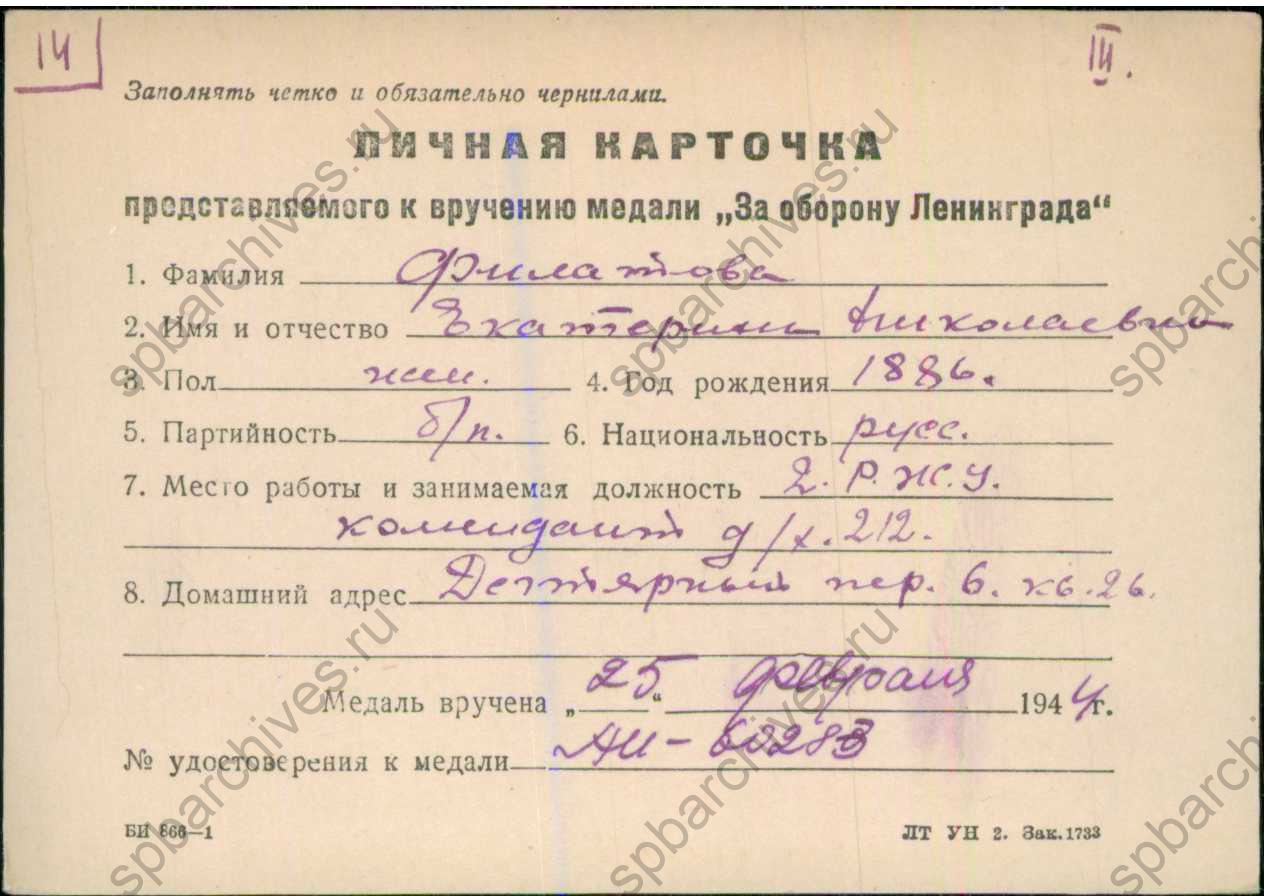 14
III.
Заполнять четко и обязательно чернилами.
ЛИЧНАЯ КАРТОЧКА
представляемого к вручению медали „За оборону Ленинграда“
1. Фамилия Филатова
2. Имя и отчество Екатерина Николаевна
3. Пол жен. 4. Год рождения 1886.
5. Партийность б/п. 6. Национальность русс.
7. Место работы и занимаемая должность 2. Р.Ж.У.
комендант д/х. 212.
8. Домашний адрес Дегтярный пер. 6. кв. 26.
Медаль вручена „25“ февраля 1944 г.
№ удостоверения к медали АИ-
БИ 866—1
ЛТ УН 2. Зак. 1733
spbarchives.ru